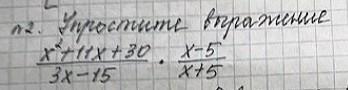 n2. Упростите выражение
(x²+11x+30)/(3x-15) · (x-5)/(x+5)